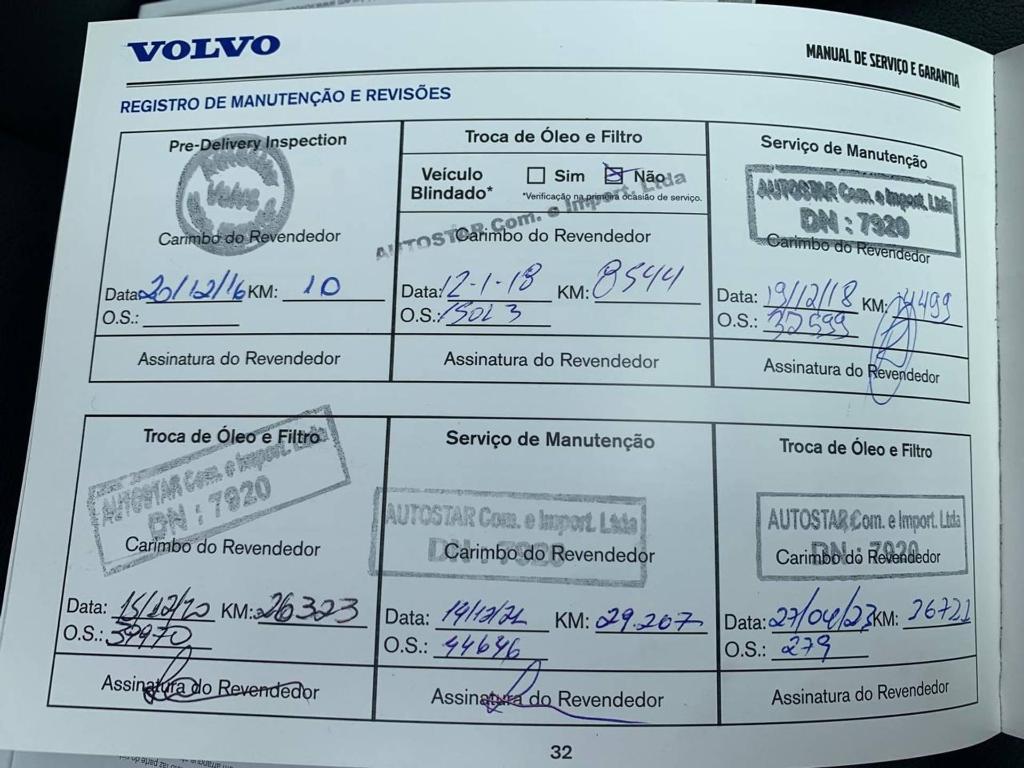 VOLVO
MANUAL DE SERVIÇO E GARANTIA
REGISTRO DE MANUTENÇÃO E REVISÕES
Pre-Delivery Inspection
Volvo
Carimbo do Revendedor
Data: 20/12/16 KM: 10
O.S.:
Assinatura do Revendedor
Troca de Óleo e Filtro
Veículo Blindado* Sim Não
*Verificação na primeira ocasião de serviço.
AUTOSTAR Com. e Import. Ltda
Carimbo do Revendedor
Data: 12-1-18 KM: 8544
O.S.:
Assinatura do Revendedor
Serviço de Manutenção
AUTOSTAR Com. e Import. Ltda
DN : 7920
Carimbo do Revendedor
Data: 19/12/18 KM: 14499
O.S.: 32599
Assinatura do Revendedor
Troca de Óleo e Filtro
AUTOSTAR Com. e Import. Ltda
DN : 7920
Carimbo do Revendedor
Data: 15/12/20 KM: 26323
O.S.: 39970
Assinatura do Revendedor
Serviço de Manutenção
AUTOSTAR Com. e Import. Ltda
DN : 7920
Carimbo do Revendedor
Data: 14/12/21 KM: 29.207
O.S.: 44646
Assinatura do Revendedor
Troca de Óleo e Filtro
AUTOSTAR Com. e Import. Ltda
DN : 7920
Carimbo do Revendedor
Data: 27/04/23 KM: 36721
O.S.: 279
Assinatura do Revendedor
32